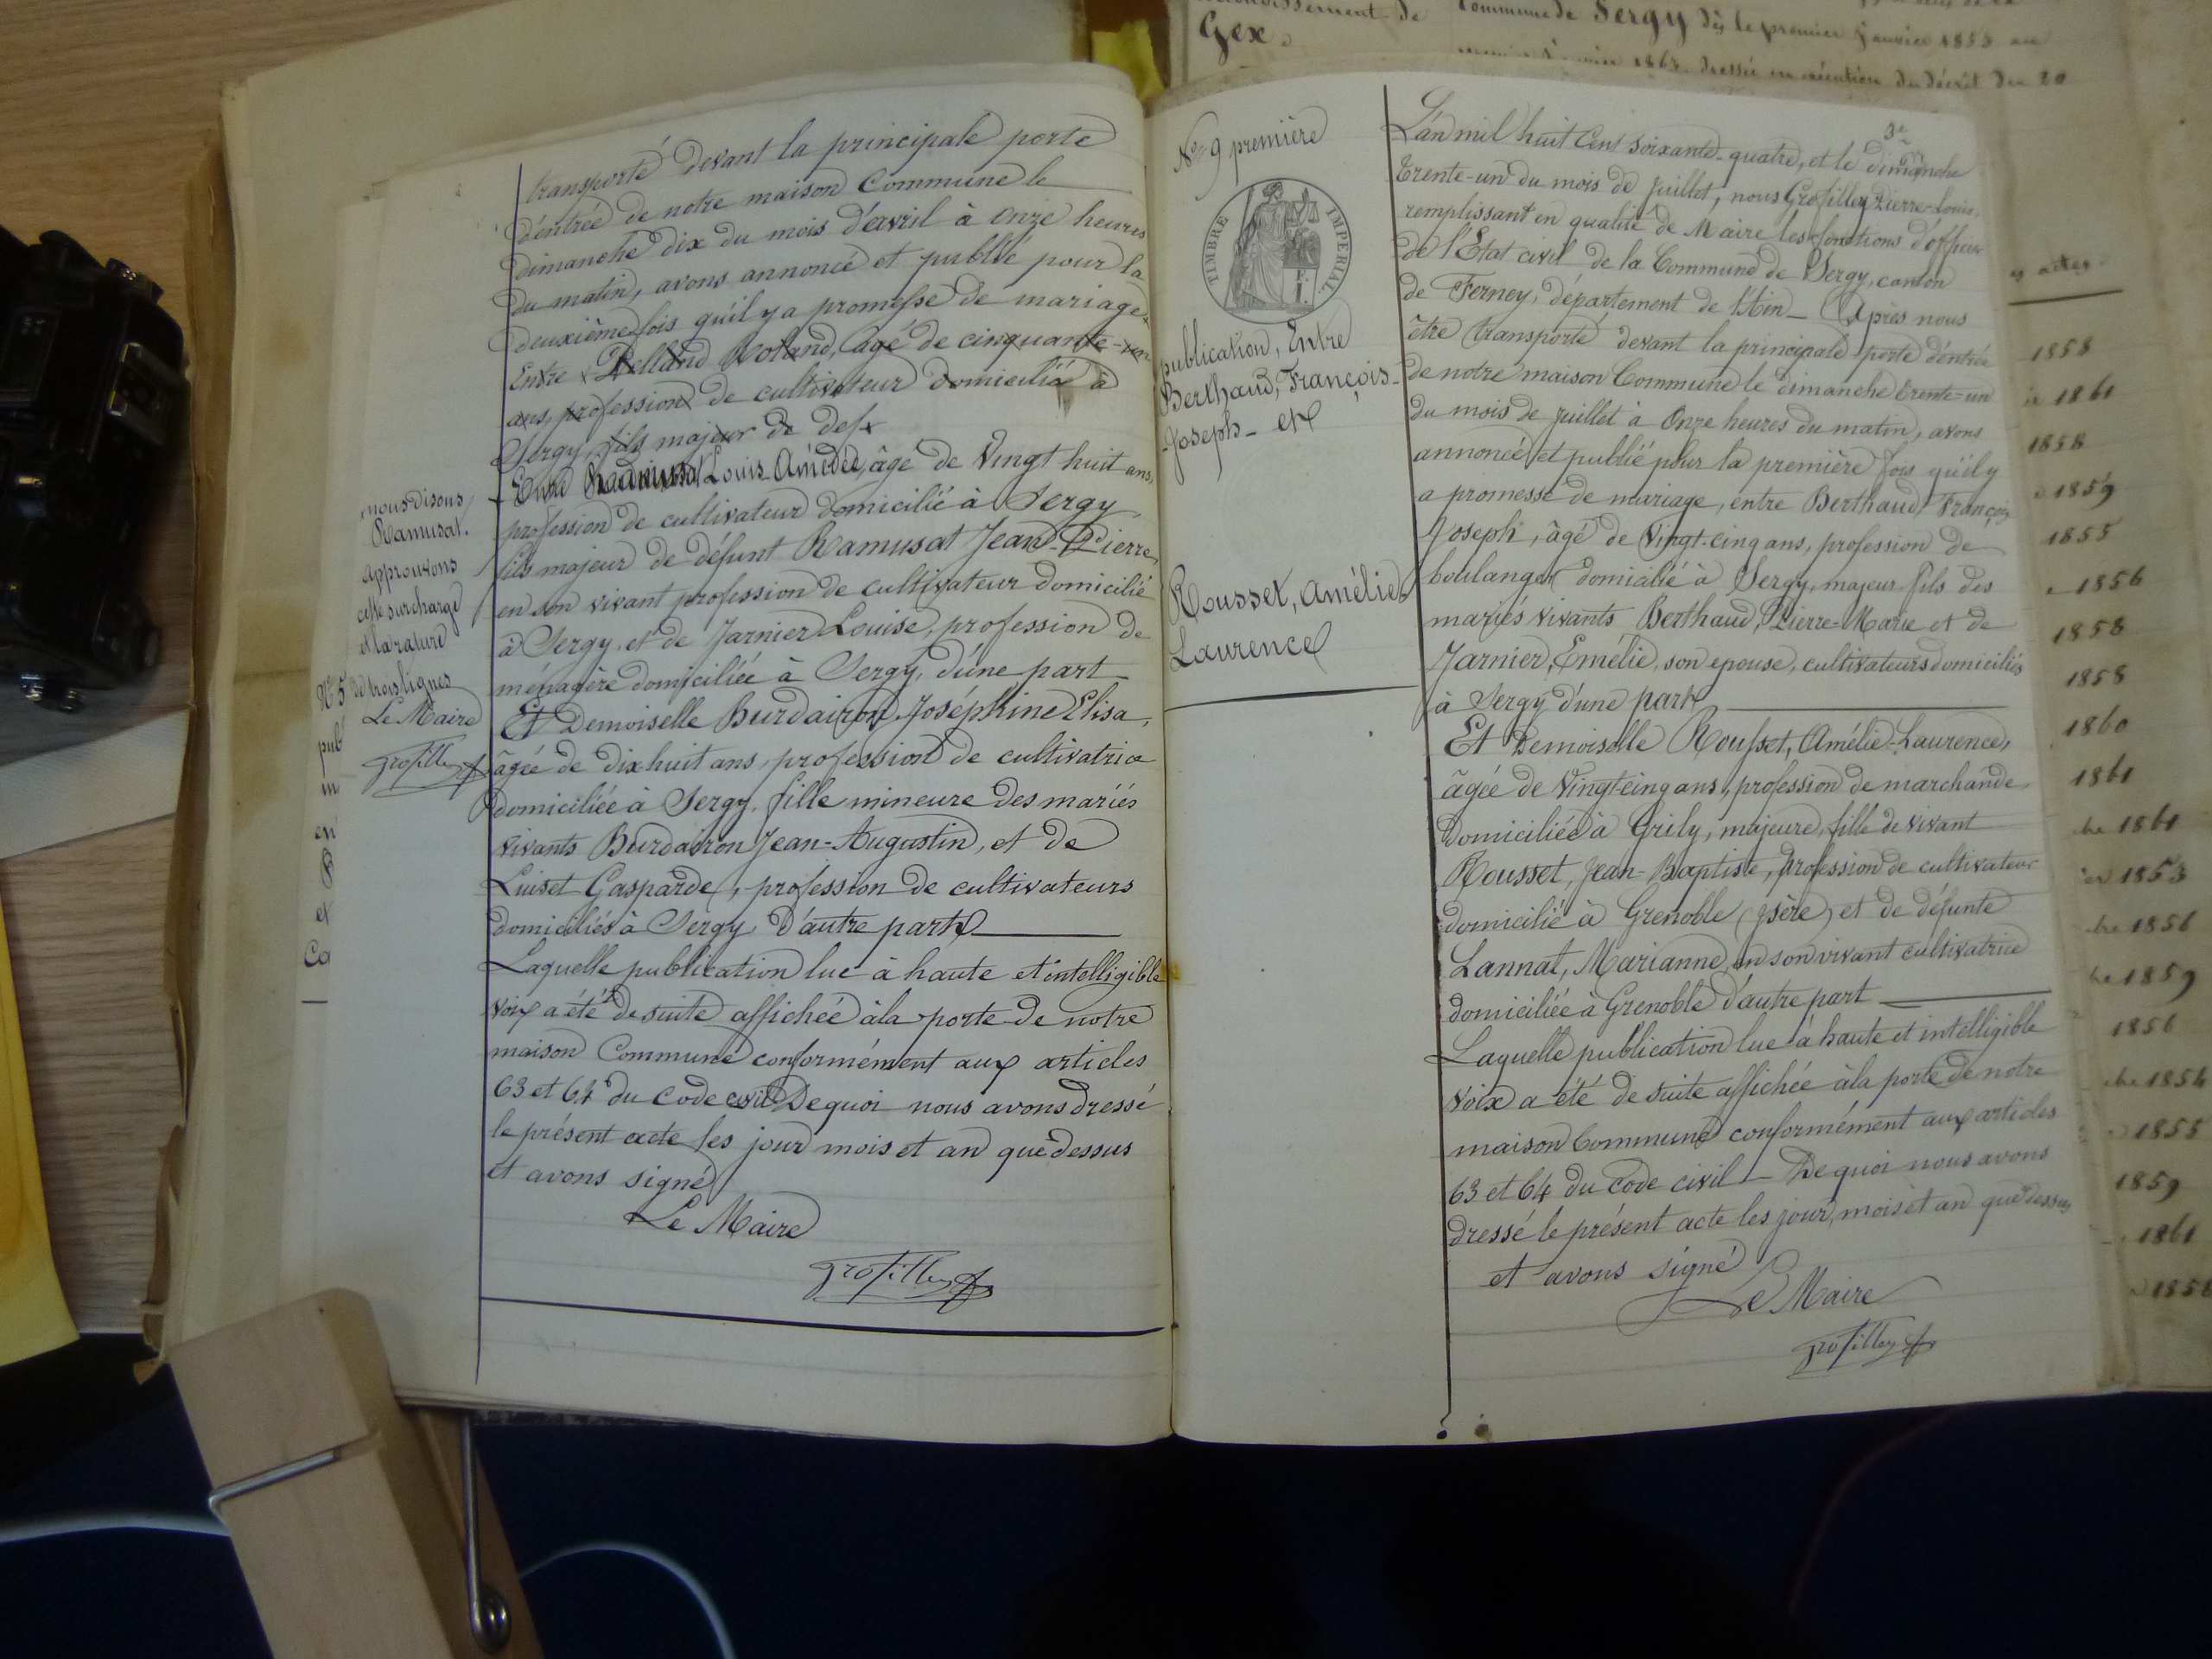 transporté devant la principale porte
d'entrée de notre maison Commune le
dimanche dix du mois d'avril à Onze heures
du matin, avons annoncé et publié pour la
deuxième fois qu'il y a promesse de mariage
Entre Rolland, âgé de cinquante-un
ans, profession de cultivateur domicilié à
Sergy, fils majeur de def
Entre Louis Amédée, âgé de Vingt huit ans,
profession de cultivateur domicilié à Sergy
fils majeur de défunt Ramusat Jean-Pierre,
en son vivant profession de cultivateur domicilié
à Sergy, et de Jarnier Louise, profession de
ménagère domiciliée à Sergy, d'une part
Et Demoiselle Burdairon, Joséphine Elisa,
âgée de dix huit ans, profession de cultivatrice
domiciliée à Sergy, fille mineure des mariés
vivants Burdairon Jean-Augustin, et de
Luiset Gasparde, profession de cultivateurs
domiciliés à Sergy D'autre part
Laquelle publication lue à haute et intelligible
voix a été de suite affichée à la porte de notre
maison Commune conformément aux articles
63 et 64 du Code civil De quoi nous avons dressé
le présent acte les jour mois et an que dessus
et avons signé
Le Maire
Grosfilley
nous disons
Ramusat.
approuvons
cette surcharge
et la rature
de trois lignes
Le Maire
Grosfilley
N° 5
pub
m
en
et
Ca
N° 9 première
TIMBRE IMPERIAL
publication, Entre
Berthaud, François-
Joseph - et
Rousset, Amélie
Laurence
L'an mil huit Cent Soixante-quatre, et le dimanche
trente-un du mois de Juillet, nous Grosfilley Pierre-Louis,
remplissant en qualité de Maire les fonctions d'officier
de l'Etat civil de la Commune de Sergy, canton
de Ferney, département de l'Ain - Après nous
être transporté devant la principale porte d'entrée
de notre maison Commune le dimanche trente-un
du mois de Juillet à Onze heures du matin, avons
annoncé et publié pour la première fois qu'il y
a promesse de mariage, entre Berthaud, François
Joseph, âgé de Vingt-cinq ans, profession de
boulanger domicilié à Sergy, majeur, fils des
mariés vivants Berthaud, Pierre-Marie et de
Jarnier, Emélie, son epouse, cultivateurs domiciliés
à Sergy d'une part
Et Demoiselle Rousset, Amélie-Laurence,
âgée de Vingt-cinq ans, profession de marchande
domiciliée à Grily, majeure, fille de vivant
Rousset, Jean-Baptiste, profession de cultivateur
domicilié à Grenoble (Isère) et de défunte
Lannat, Marianne, en son vivant cultivatrice
domiciliée à Grenoble d'autre part
Laquelle publication lue à haute et intelligible
voix a été de suite affichée à la porte de notre
maison Commune conformément aux articles
63 et 64 du Code civil - De quoi nous avons
dressé le présent acte les jour, mois et an que dessus
et avons signé
Le Maire
Grosfilley
Gex.
Commune de Sergy dès le premier janvier 1853 au
1863 dressée en exécution du décret du 20
actes
1858
1861
1858
1859
1855
1856
1858
1858
1860
1861
1861
1853
1856
1859
1856
1854
1855
1859
1861